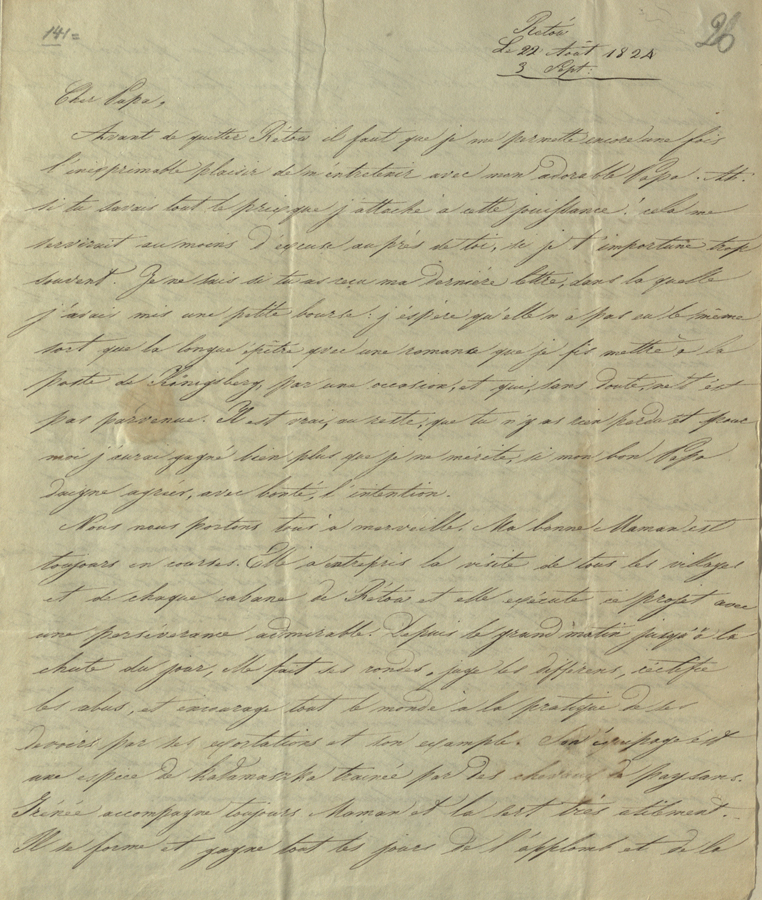 141=
26
Retów
Le 22 Août 1824
3 Sept:
Cher Papa,
Avant de quitter Rétow il faut que je me permette encore une fois
l'inexprimable plaisir de m'entretenir avec mon adorable Papa. Ah!
si tu savais tout le prix que j'attache à cette jouissance! cela me
servirait au moins d'excuse auprés de toi, si je t'importune trop
souvent. Je ne sais si tu as reçu ma derniére lettre, dans la quelle
j'avais mis une petite bourse: j'éspére qu'elle n'a pas eu le même
sort que la longue épitre avec une romance que je fis mettre à la
poste de Königsberg, par une occasion, et qui, sans doute, ne t'est
pas parvenue. Il est vrai, au reste, que tu n'y as rien perdu et pour
moi j'aurai gagné bien plus que je ne mérite, si mon bon Papa
daigne agréer, avec bonté, l'intention.
Nous nous portons tous à merveille. Ma bonne Maman est
toujours en courses. Elle a entrepris la visite de tous les villages
et de chaque cabane de Rétow et elle exécute ce projet avec
une persévérance admirable. Depuis le grand matin jusqu'à la
chute du jour, elle fait ses rondes, juge les différens, réctifie
les abus, et encourage tout le monde à la pratique de ses
devoirs par ses exortations et son example. Son équipage est
une espéce de kałamaszka trainée par des chevaux de paysans.
Irénée accompagne toujours Maman et la sert trés utilement.
Il se forme et gagne tout les jours de l'applomb et de la